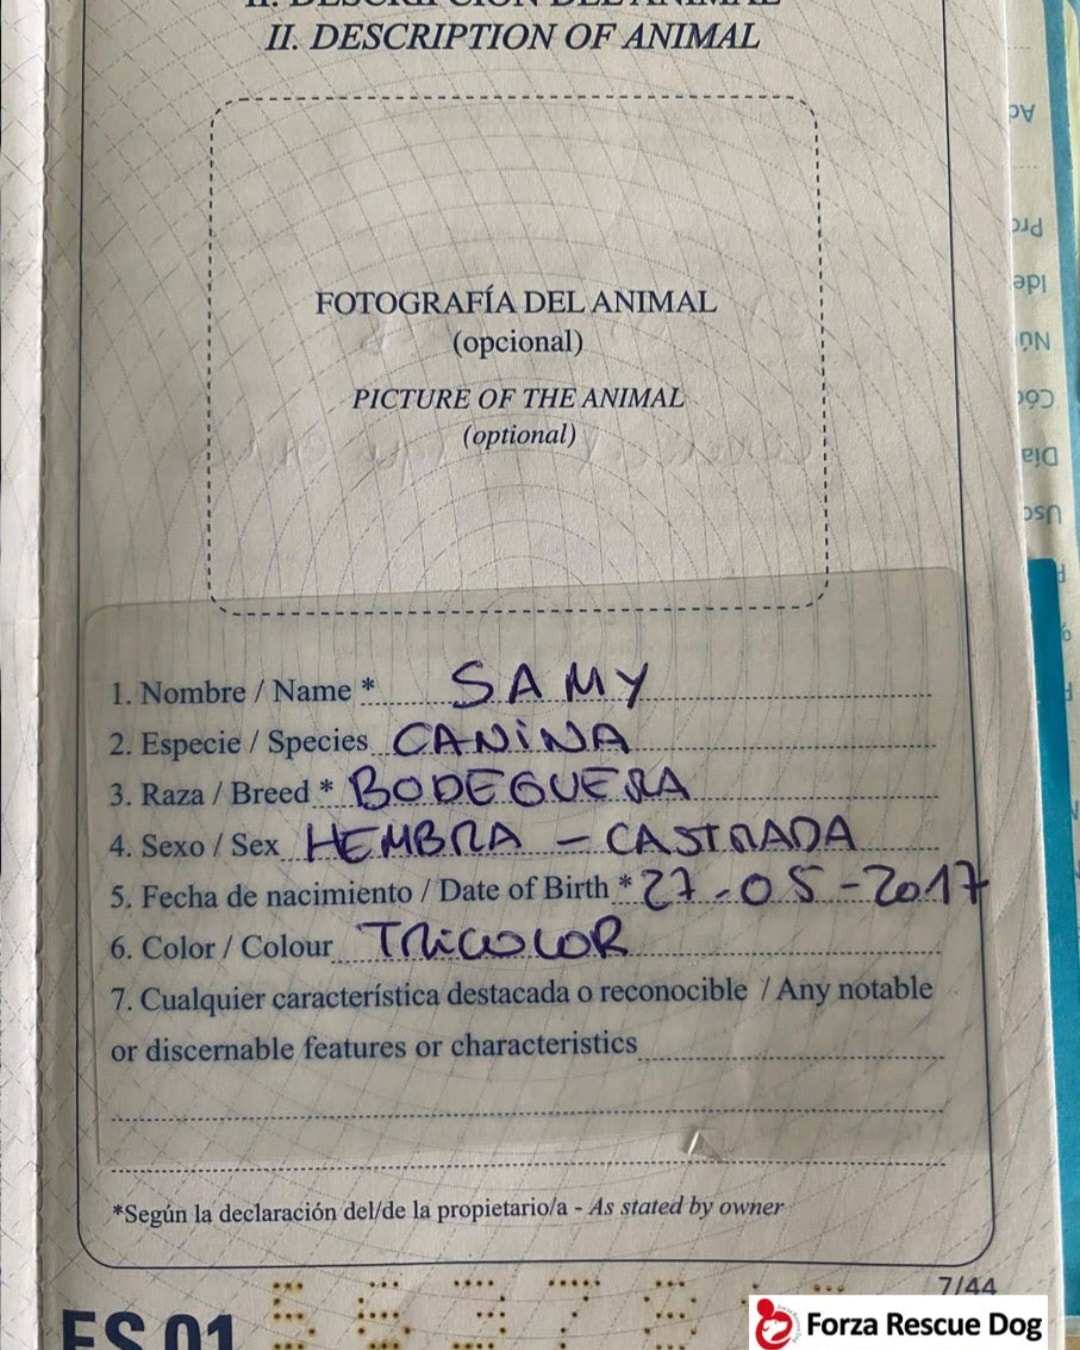 II. DESCRIPCIÓN DEL ANIMAL
II. DESCRIPTION OF ANIMAL
FOTOGRAFÍA DEL ANIMAL
(opcional)
PICTURE OF THE ANIMAL
(optional)
1. Nombre / Name * SAMY
2. Especie / Species CANINA
3. Raza / Breed * BODEGUERA
4. Sexo / Sex HEMBRA - CASTRADA
5. Fecha de nacimiento / Date of Birth * 27-05-2017
6. Color / Colour TRICOLOR
7. Cualquier característica destacada o reconocible / Any notable
or discernable features or characteristics
*Según la declaración del/de la propietario/a - As stated by owner
7/44
ES 01
Forza Rescue Dog